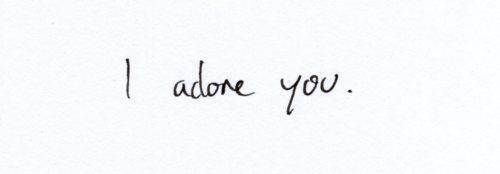 I adore you.